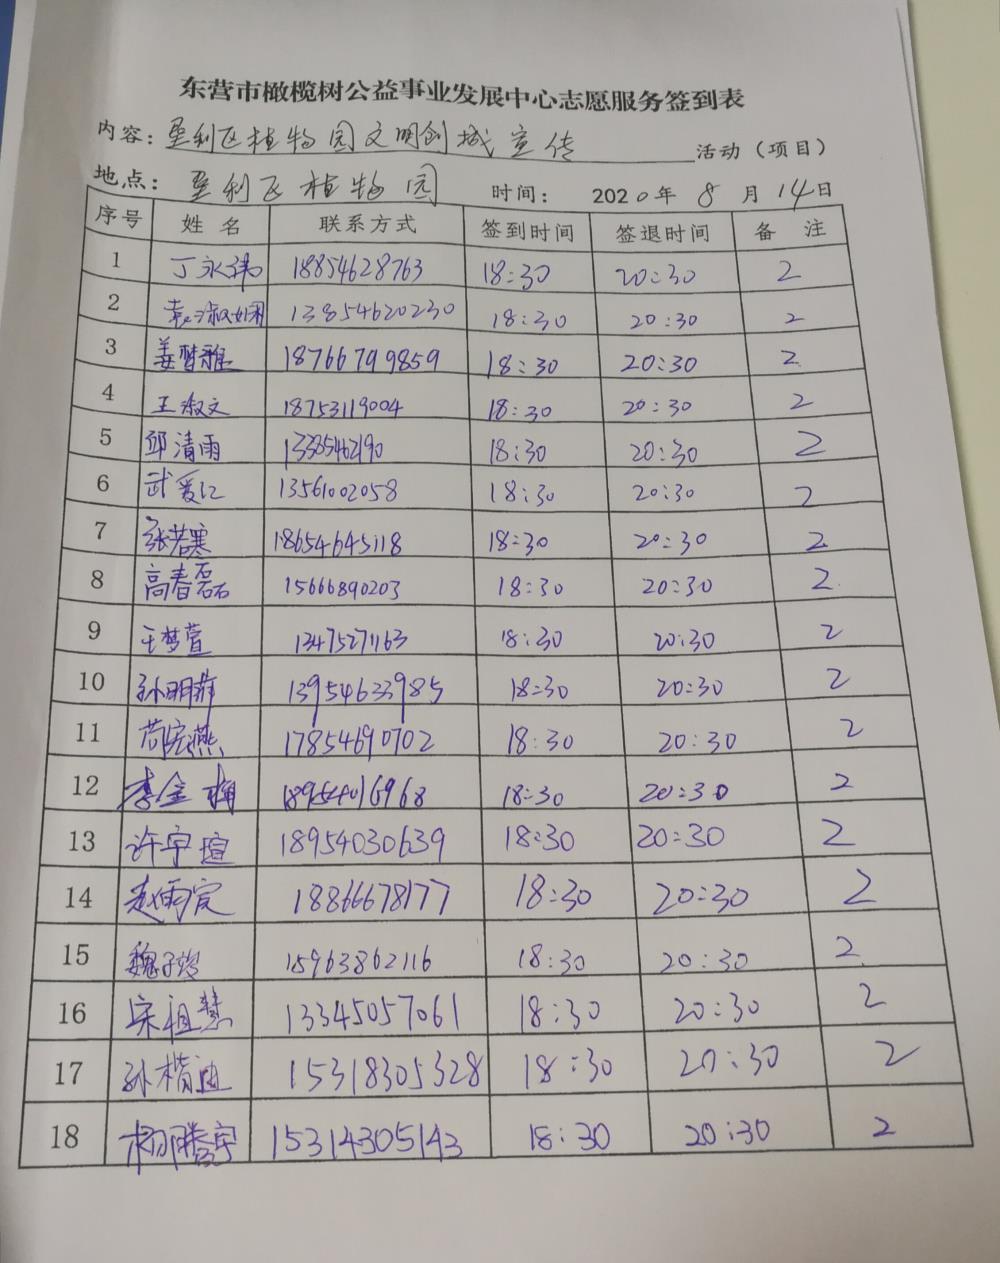 东营市橄榄树公益事业发展中心志愿服务签到表
内容：垦利区植物园文明创城宣传 活动（项目）
地点：垦利区植物园 时间： 2020年 8 月 14日
序号 姓名 联系方式 签到时间 签退时间 备 注
1 丁永祎 18854628763 18:30 20:30 2
2 袁淑娴 13854620230 18:30 20:30 2
3 姜梦雅 18766799859 18:30 20:30 2
4 王淑文 18753119004 18:30 20:30 2
5 邱清雨 18:30 20:30 2
6 武爱江 13561002058 18:30 20:30 2
7 张若寒 18654645118 18:30 20:30 2
8 高春磊 15666890203 18:30 20:30 2
9 王梦萱 13475271163 18:30 20:30 2
10 孙明菲 13954633985 18:30 20:30 2
11 苟宏燕 17854690702 18:30 20:30 2
12 李金梅 18954016968 18:30 20:30 2
13 许宇瑄 18954030639 18:30 20:30 2
14 赵雨宸 18866678177 18:30 20:30 2
15 魏子竣 15963862116 18:30 20:30 2
16 宋祖慧 13345057061 18:30 20:30 2
17 孙楷迪 15318305328 18:30 20:30 2
18 杨腾宇 15314305143 18:30 20:30 2